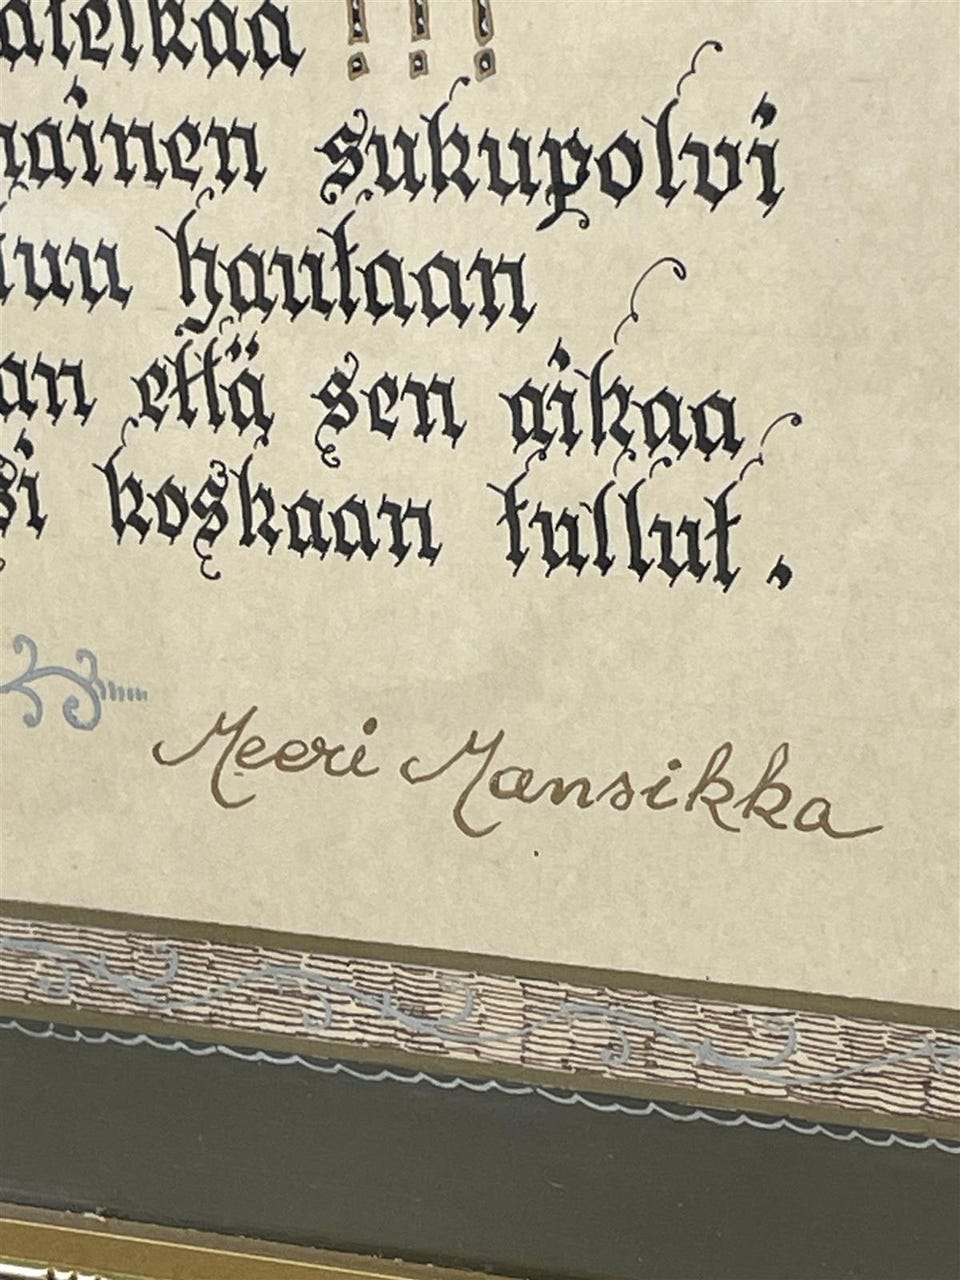 atelkaa !!!
nainen sukupolvi
luu hautaan
an että sen aikaa
si koskaan tullut.
Meeri Mansikka